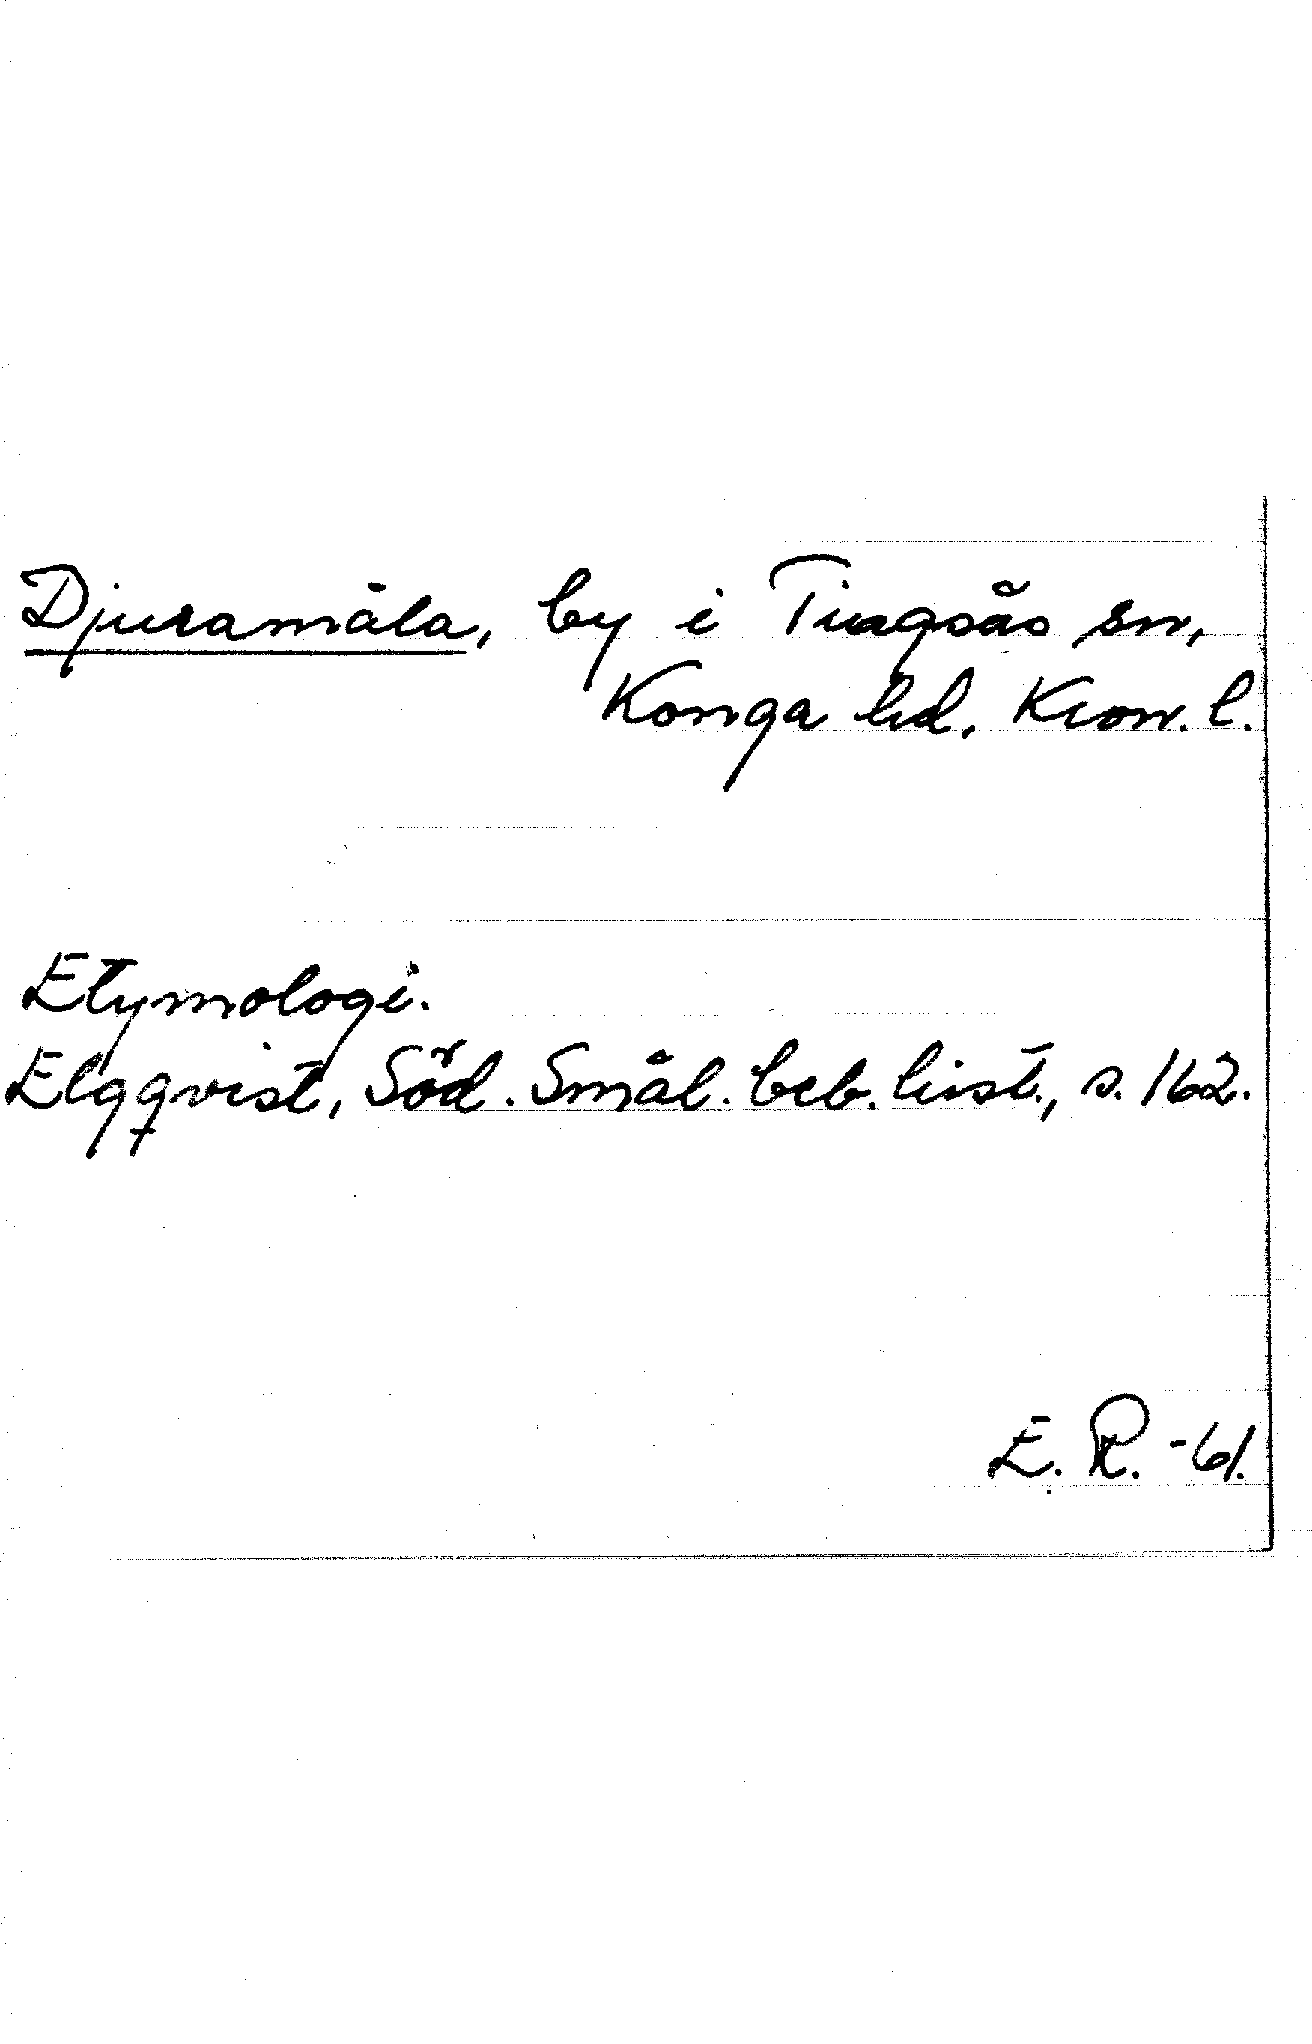 Djuramåla, by i Tingsås sn,
Konga hd, Kron. l.
Etymologi.
Elgqvist, Söd. Smål. beb. hist., s. 162.
E. R. -61.